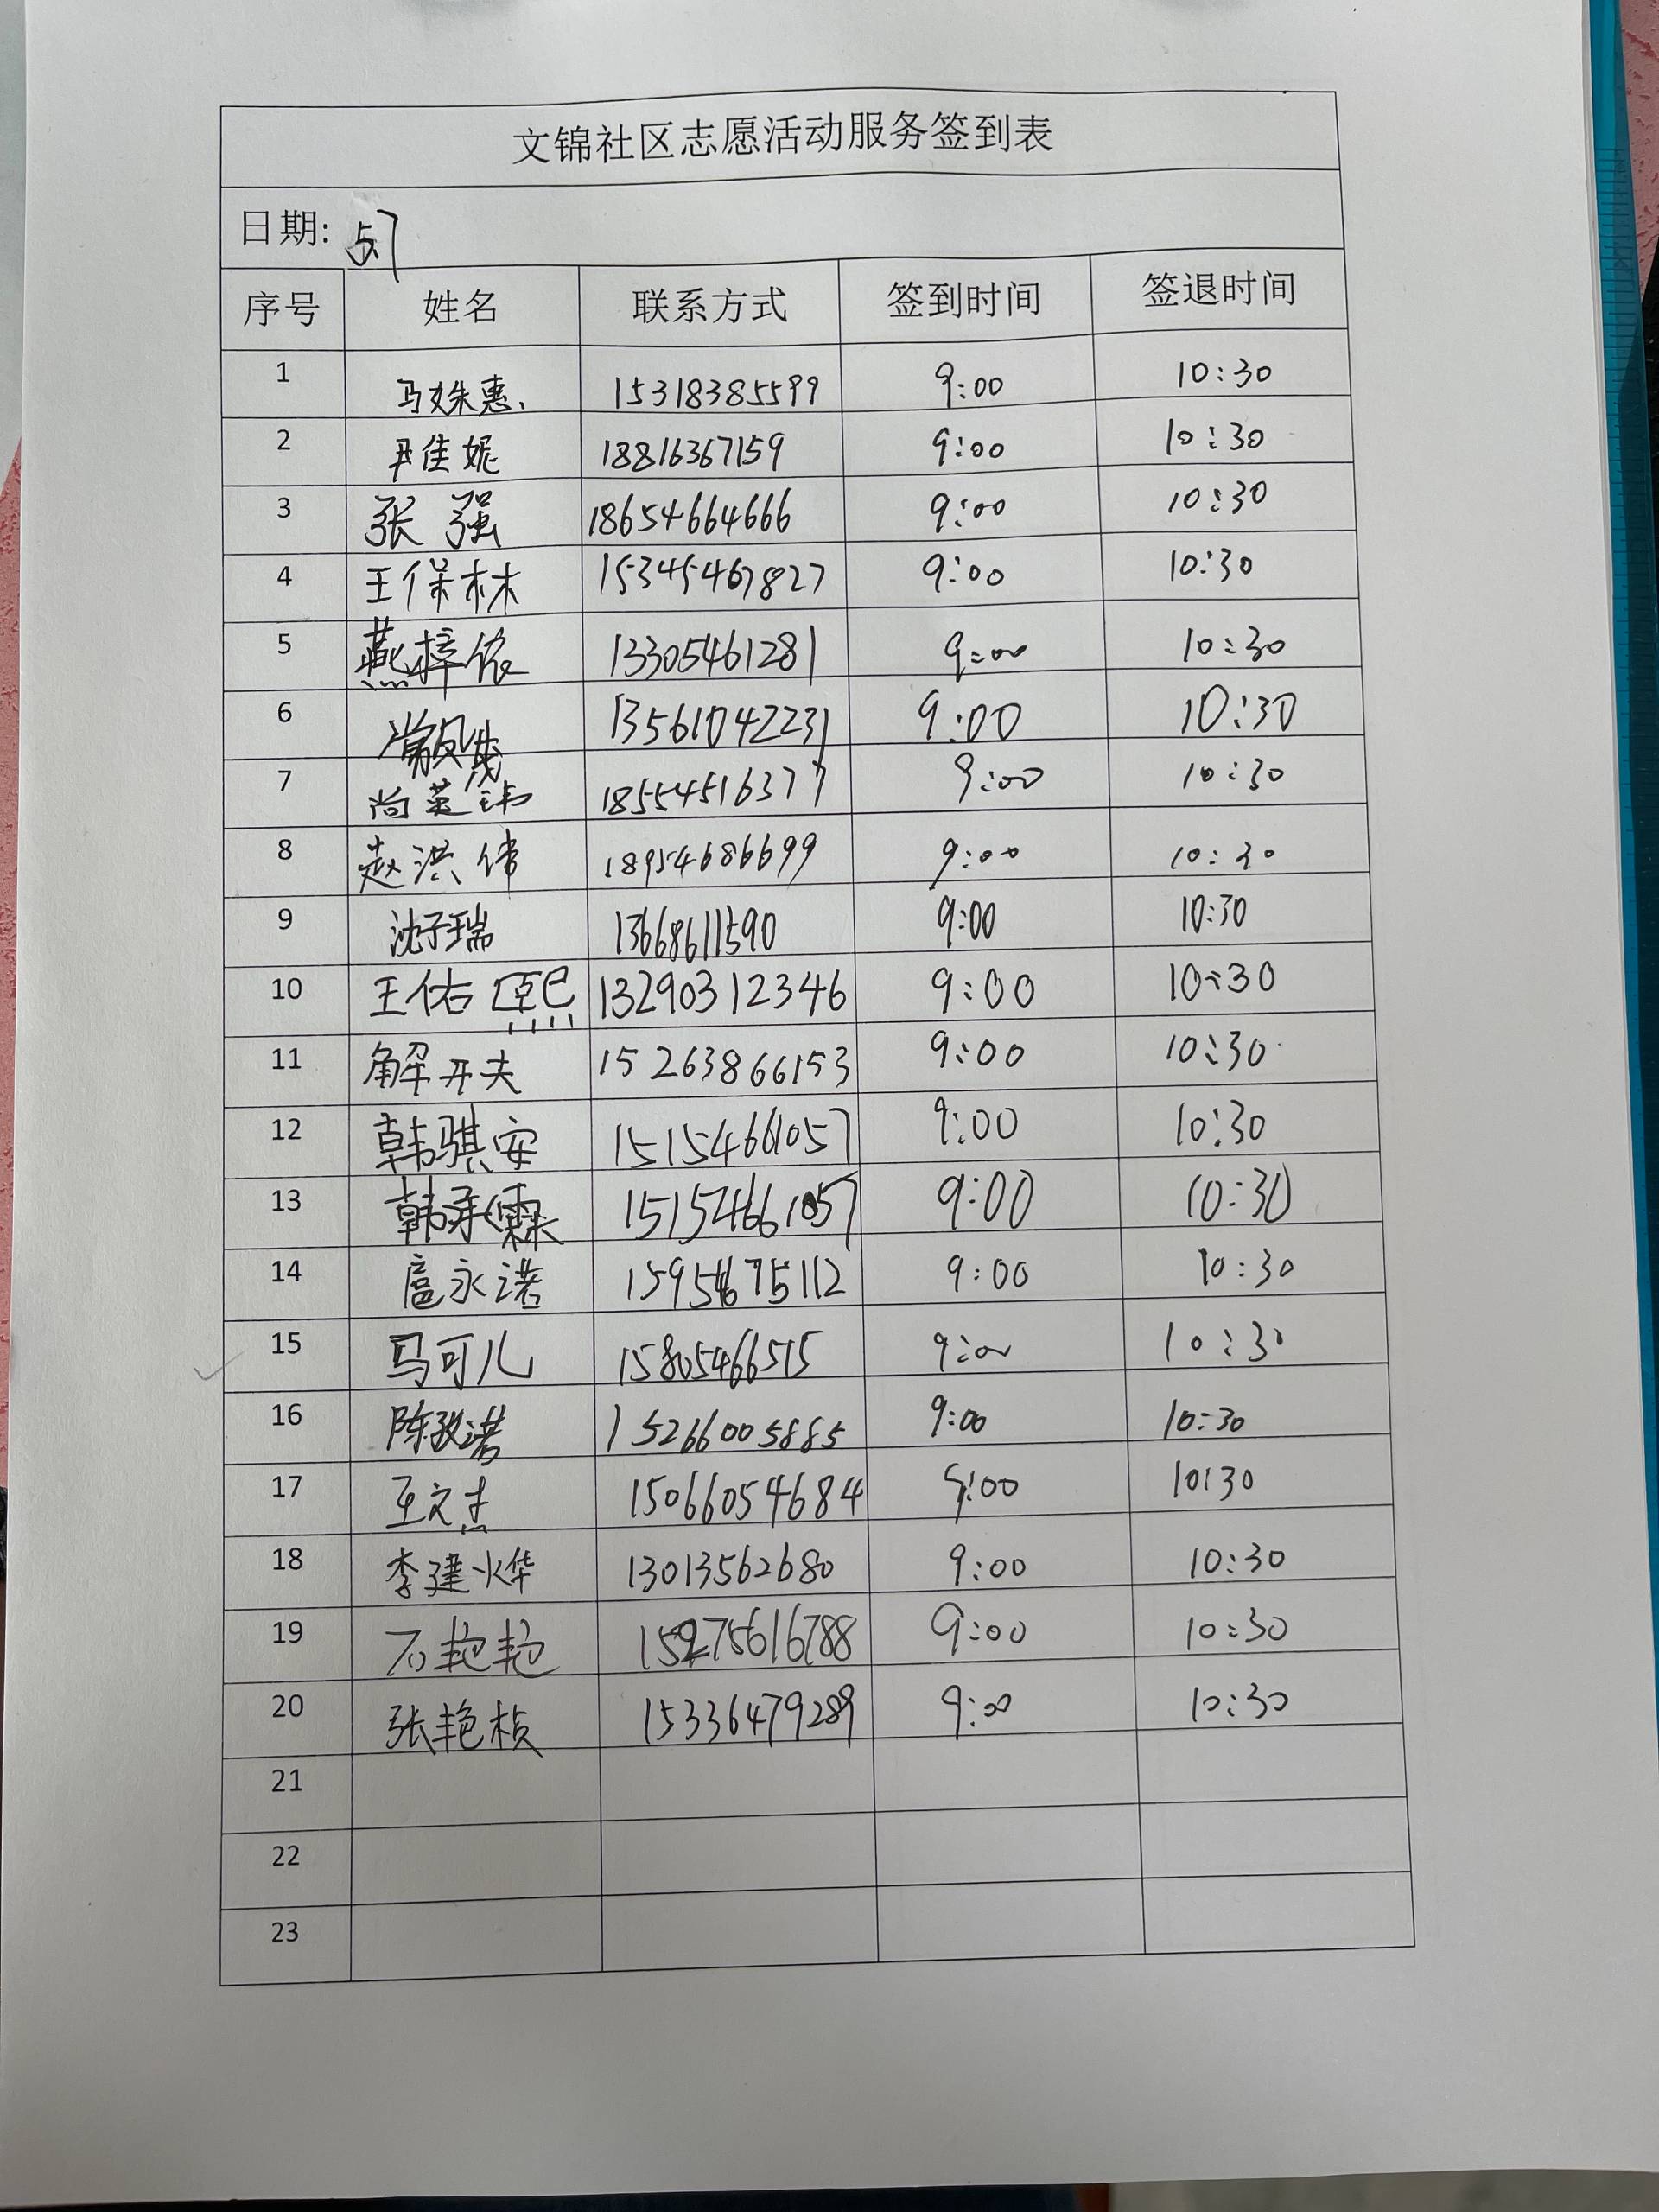 文锦社区志愿活动服务签到表
日期: 5.7
序号 姓名 联系方式 签到时间 签退时间
1 马姝惠 15318385599 9:00 10:30
2 尹佳妮 18816367159 9:00 10:30
3 张强 18654664666 9:00 10:30
4 王保林 15345467827 9:00 10:30
5 燕梓依 13305461281 9:00 10:30
6 13561042231 9:00 10:30
7 尚英伟 18554516377 9:00 10:30
8 赵洪伟 18954686699 9:00 10:30
9 沈子瑞 13668611590 9:00 10:30
10 王佑熙 13290312346 9:00 10:30
11 解开夫 15263866153 9:00 10:30
12 韩骐安 15154661057 9:00 10:30
13 韩承霖 15154661057 9:00 10:30
14 扈永诺 15954675112 9:00 10:30
15 马可儿 15805466515 9:00 10:30
16 15266005885 9:00 10:30
17 王文杰 15066054684 9:00 10:30
18 李建烨 13013562680 9:00 10:30
19 石艳艳 15275616788 9:00 10:30
20 张艳桢 15336479289 9:00 10:30
21
22
23